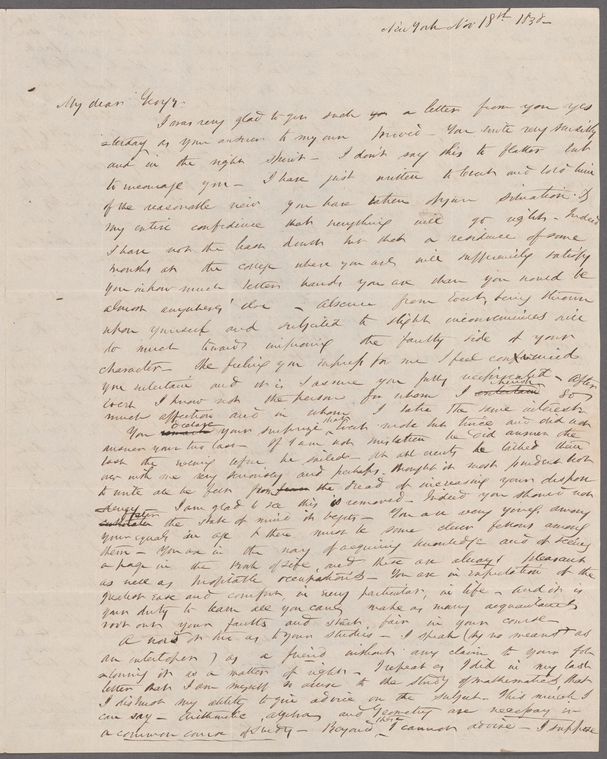 New York Nov 18th 1838-
My dear Geo
I was very glad to get such a letter from you yes
sterday as your answer to my own proved - You write very sensibly
and in the right spirit - I don't say this to flatter but
to encourage you - I have just written to and told him
of the reasonable view you have taken of your situation &
my entire confidence that everything will go right - Indeed
I have not the least doubt but that a residence of some
months at the college where you are, will sufficiently satisfy
you in how much better hands you are than you would be
almost anywhere else - absence from being thrown
upon yourself and subjected to slight inconveniences will
do much towards improving the faulty side of your
character - the feeling you express for me I feel convinced
you entertain and it is I assure you fully reciprocated - after
I know not the person for whom I cherish so
much affection and in whom I take the same interest
You declare your surprise that wrote but twice and did not
answer your two last - If I am not mistaken he did answer the
last the evening before he sailed - at all events he talked them
over with me very seriously and perhaps thought it most prudent not
to write at all from the dread of increasing your despon
dency - I am glad to see this is removed - Indeed you should not
foster the state of mind it begets - You are very young, among
your equals in age & there must be some clever fellows among
them - You are in the way of acquiring knowledge and of seeing
a page in the book of life, and these are always pleasant
as well as profitable occupations - You are in expectation of the
greatest ease and comfort, in every particular, in life - and it is
your duty to learn all you can, make as many acquaintances
root out your faults and start fair in your course -
A word or two as to your studies - I speak (by no means as
an interloper) as a friend without any claim to your fol
=lowing it as a matter of right - I repeat as I did in my last
letter that I am myself so averse to the study of mathematics that
I distrust my ability to give advice on the subject - This much I
can say - Arithmetic, algebra and Geometry are necessary in
a common course of study - Beyond these I cannot advise - I suppose